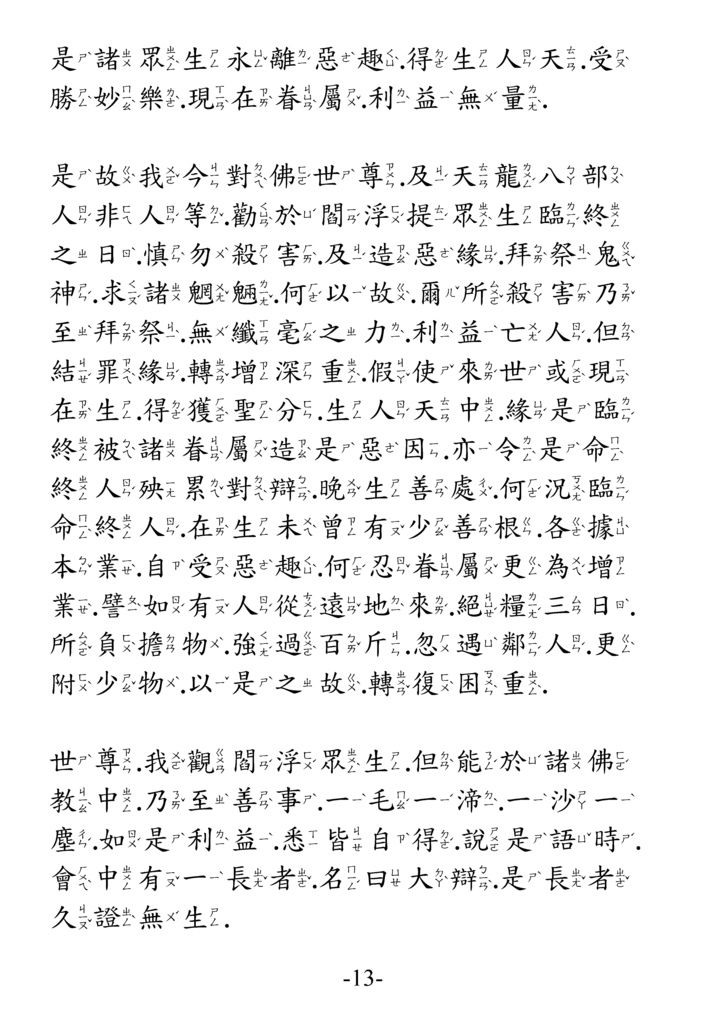 是諸眾生永離惡趣.得生人天.受
勝妙樂.現在眷屬.利益無量.
是故我今對佛世尊.及天龍八部
人非人等.勸於閻浮提眾生臨終
之日.慎勿殺害.及造惡緣.拜祭鬼
神.求諸魍魎.何以故.爾所殺害乃
至拜祭.無纖毫之力.利益亡人.但
結罪緣.轉增深重.假使來世或現
在生.得獲聖分.生人天中.緣是臨
終被諸眷屬造是惡因.亦令是命
終人殃累對辯.晚生善處.何況臨
命終人.在生未曾有少善根.各據
本業.自受惡趣.何忍眷屬更為增
業.譬如有人從遠地來.絕糧三日.
所負擔物.強過百斤.忽遇鄰人.更
附少物.以是之故.轉復困重.
世尊.我觀閻浮眾生.但能於諸佛
教中.乃至善事.一毛一渧.一沙一
塵.如是利益.悉皆自得.說是語時.
會中有一長者.名曰大辯.是長者
久證無生.
-13-